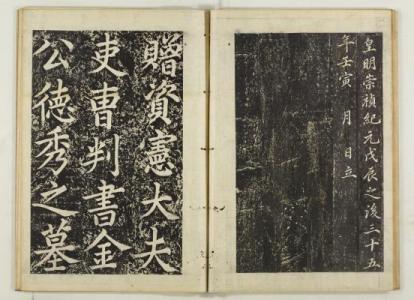 皇明崇禎紀元戊辰之後三十五
年壬寅　月　日立
贈資憲大夫
吏曹判書金
公德秀之墓